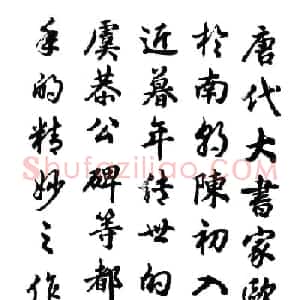 唐代大書家歐
於南朝陳初入
近暮年傳世的
虞恭公碑等都
年的精妙之作
Shufaziliao.com